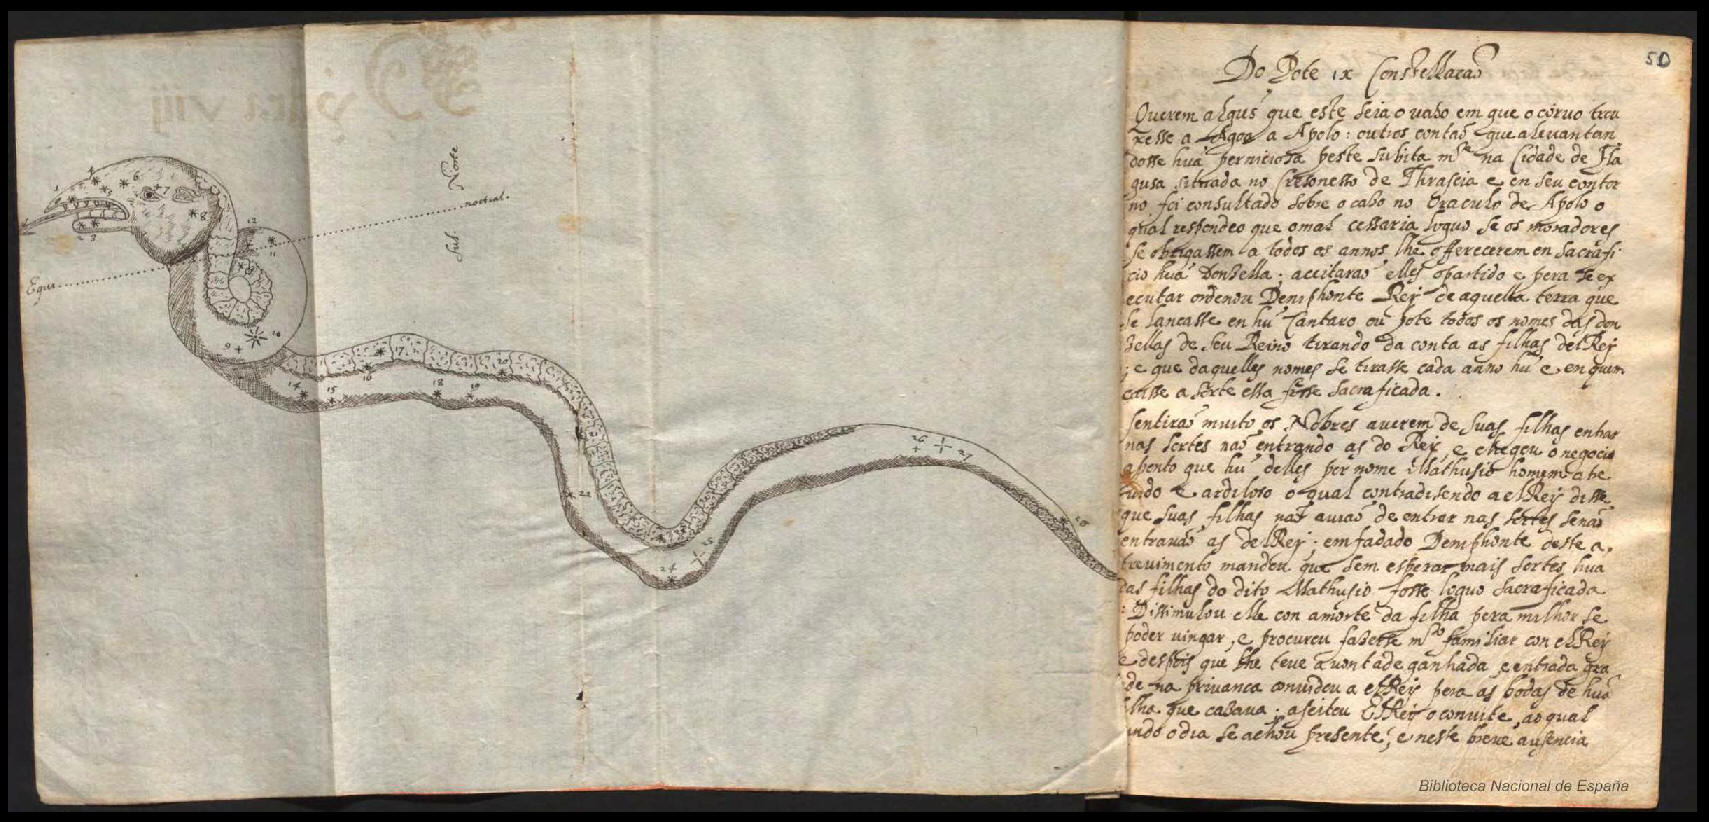 50
Do Pote ix Constellacaõ
Querem algũs que este seia o vaso em que o corvo trou
xesse a Agoa a Apolo: outros contaõ que alevantan
dosse huã perniciosa peste subita mte na Cidade de Fla
gusa situada no Cresonesso de Thrascia e en seu contor
no foi consultado sobre o caso no Oraculo de Apolo o
qual respondeo que o mal cessaria loguo se os moradores
se obrigassem a todos os annos lhe offerecerem en sacrafi
cio huã Donzella; aceitaraõ elles o partido e pera se ex
ecutar ordenou Demiphonte Rey de aquella terra que
se lancasse en hũ Cantaro ou pote todos os nomes das don
zellas de seu Reino tirando da conta as filhas delRey
; e que daquelles nomes se tirasse cada anno hũ e en quem
caisse a sorte essa fosse sacraficada.
sentiraõ muito os Nobres averem de suas filhas entrar
nas sortes naõ entrando as do Rey, e chegou o negocio
a ponto que hũ delles por nome Mathusio homem atre
vido e ardiloso o qual contradisendo a elRey disse
que suas filhas naõ aviaõ de entrar nas sortes senaõ
entravaõ as delRey; emfadado Demiphonte deste a.
trevimento mandou que sem esperar mais sortes hua
das filhas do dito Mathusio fosse loguo sacraficada
: Dissimulou elle con a morte da filha pera milhor se
poder vingar, e procurou fazerse mto familiar con elRey
e despois que lhe teve a vontade ganhada e entrada gra
de na privanca convidou a elRey pera as bodas de huã
filha que casava; aseitou ElRey o convite, ao qual
indo o dia se achou presente, e neste breve ausencia
Norte
Sul
noctial.
Equi
1
2
3
5
6
7
8
9
10
11
12
14
15
16
17
18
19
20
22
24
25
26
27
28
Biblioteca Nacional de España